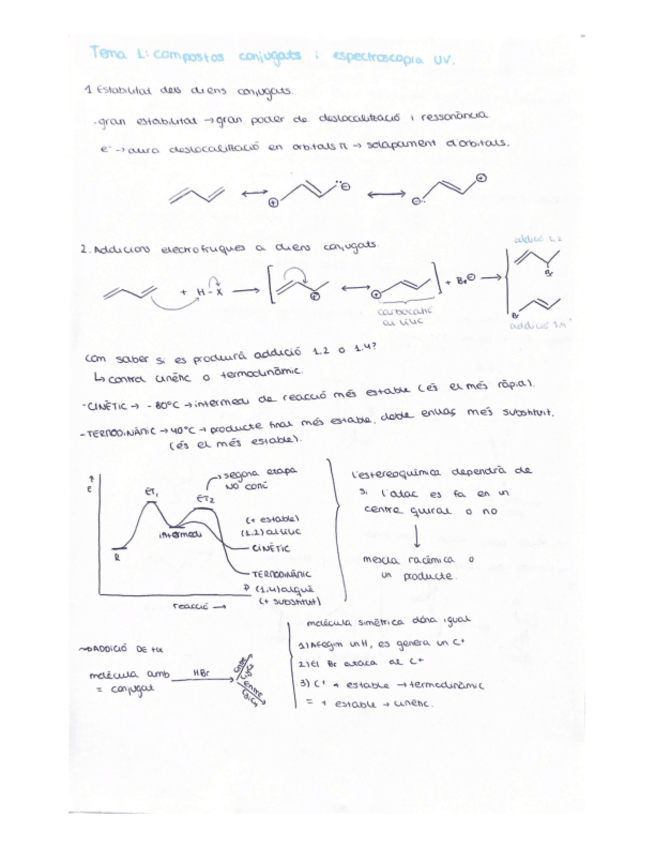 Tema 1: compostos conjugats i espectroscopia UV.
1 Estabilitat dels diens conjugats.
-gran estabilitat → gran poder de deslocalització i ressonància
e⁻ → aura deslocalització en orbitals π → solapament d'orbitals.
2. Addicions electrofíliques a diens conjugats.
addició 1,2
+ H-X → [ ↔ ] + Br⊖ →
Br
carbocatió
al·lílic
Br
addició 1,4
com saber si es produirà addició 1.2 o 1.4?
↳ control cinètic o termodinàmic.
-CINÈTIC → -80°C → intermedi de reacció més estable (és el més ràpid).
-TERMODINÀMIC → 40°C → producte final més estable, doble enllaç més substituït.
(és el més estable).
E
ET₁
ET₂
segona etapa
NO conc
intermedi
R
(+ estable)
(1,2) al·lílic
CINÈTIC
TERMODINÀMIC
P (1,4) alquè
(+ substituït)
reacció →
l'estereoquímica dependrà de
si l'atac es fa en un
centre quiral o no
↓
mescla racèmica o
un producte.
molècula simètrica dóna igual
~ADDICIÓ DE HX
molècula amb
= conjugat
HBr
entre
C₁iC₂
entre
C₃iC₄
1) Afegim un H, es genera un C⁺
2) El Br ataca al C⁺
3) C⁺ + estable → termodinàmic
= + estable → cinètic.